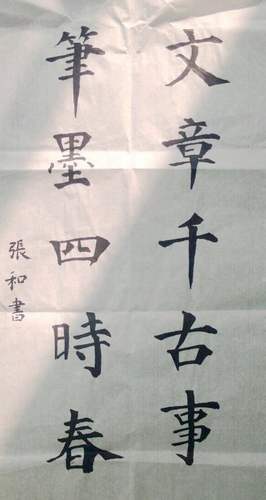 文章千古事
筆墨四時春
張和書